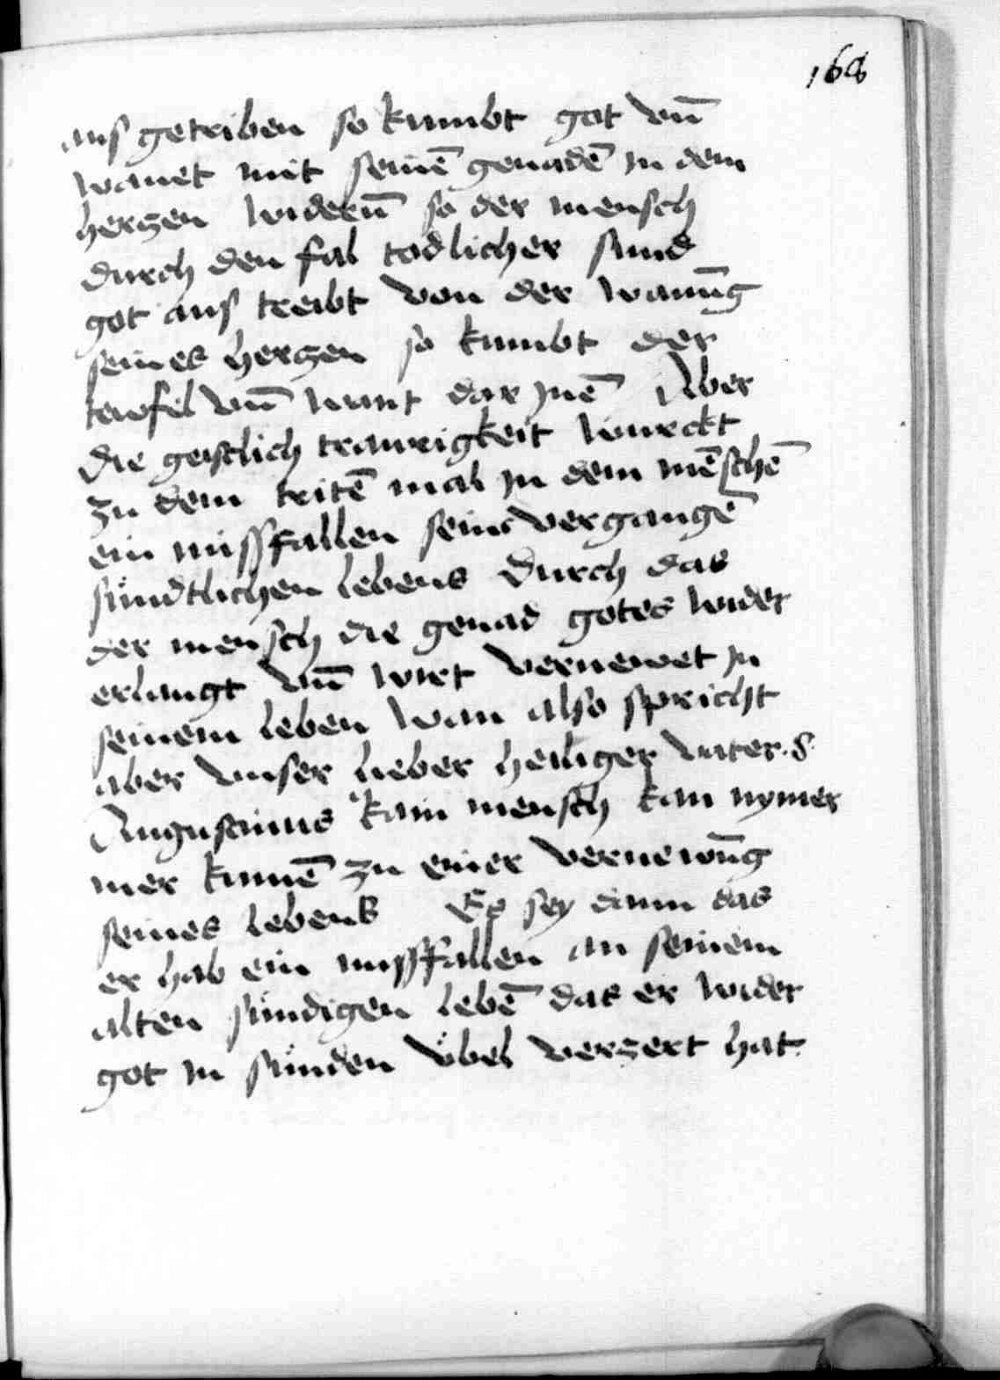 168
aus getriben so kumbt got vn̄
wanet mit seinē genadē jn dem
herzen widerū so der mensch
durch den fal todlicher sund
got aus treibt von der wanūg
seines herzen so kumbt der
teufel vn̄ want dar jnē Aber
die geistlich traurigkeit wurckt
zu dem tritē mal jn dem mēschē
ein missfallen seins vergangē
sůndtlichen lebens durch das
der mensch die genad gotes wider
erlangt vn̄ wirt vernewet jn
seinem leben wan also spricht
aber vnser lieber heiliger vater .S.
Augustinus kain mensch kan nymer
mer kumē zu einer vernewūg
seines lebens Es sey dann das
er hab ein missfallen an seinem
alten sůndigen lebē das er wider
got in sůnden vͦbel verzert hat